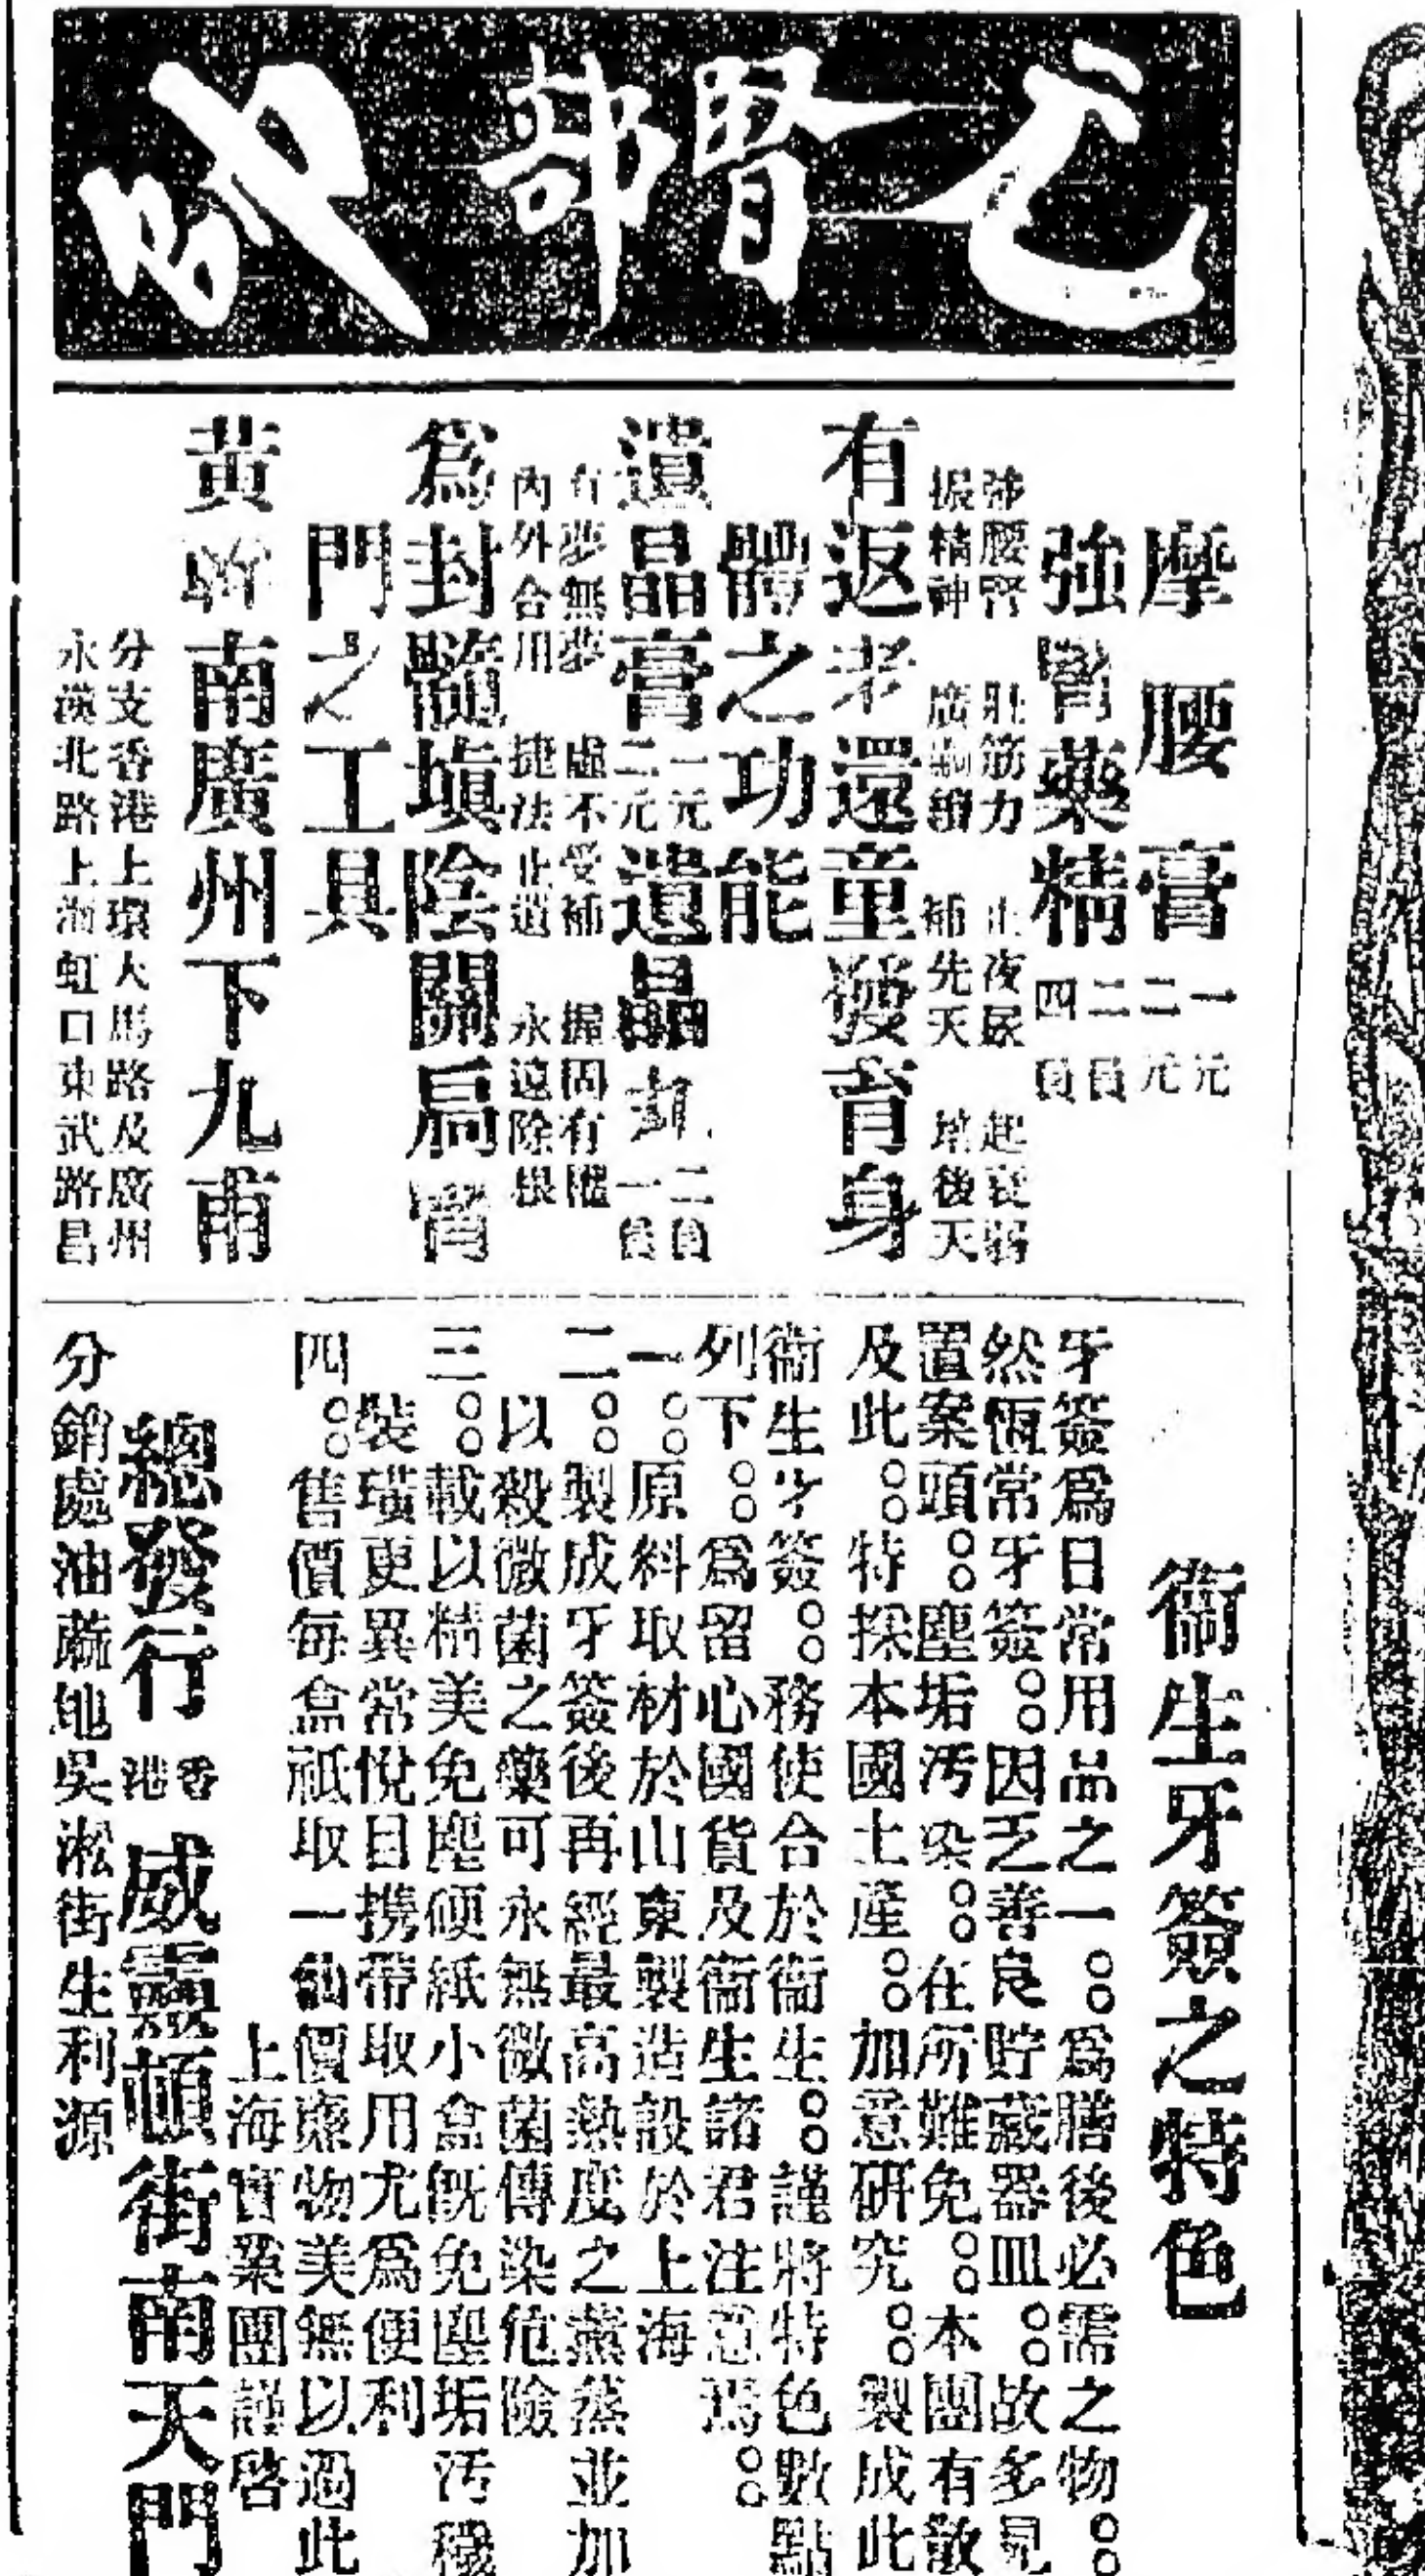 摩腰膏 一元 二元
強腎藥精 二員 四員
強腰腎 壯筋力 止夜尿 起衰弱
振精神 廣胤嗣 補先天 培後天
有返老還童發育身
體之功能
遺晶膏 一元 二元 遺晶丸 二員 一員
有夢無夢 虛不受補 握固有權
內外合用 捷法止遺 永遠除根
爲封髓塡陰關扃腎
門之工具
黃 南廣州下九甫
分支香港上環大馬路及廣州
永漢北路上海虹口東武路昌
衞生牙簽之特色
牙簽爲日常用品之一。。爲膳後必需之物。。
然恆常牙簽。。因乏善良貯藏器皿。。故多見
置案頭。。塵垢汚染。。在所難免。。本團有散
及此。。特採本國土產。。加意研究。。製成此
衞生牙簽。。務使合於衞生。。謹將特色數點
列下。。爲留心國貨及衞生諸君注意焉。。
一。。原料取材於山東製造設於上海
二。。製成牙簽後再經最高熱度之薰蒸並加
以殺微菌之藥可永無微菌傳染危險
三。。載以精美免塵硬紙小盒旣免塵垢汚穢
裝璜更異常悅目携帶取用尤爲便利
四。。售價每盒祗取一仙價廉物美無以過此
上海實業團謹啓
總發行 香港 威靈頓街南天門
分銷處油蔴地吳淞街生利源